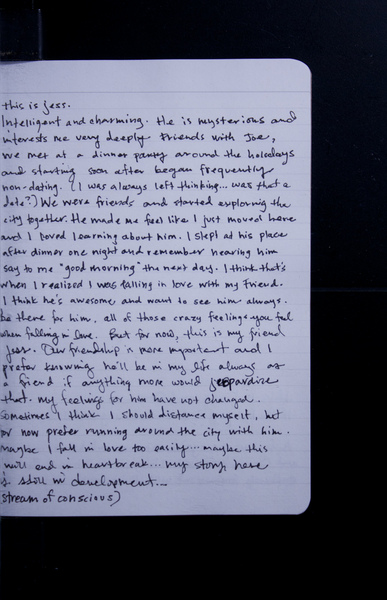 this is jess.
Intelligent and charming. He is mysterious and
interests me very deeply. Friends with Joe,
we met at a dinner party around the holidays
and starting soon after began frequently
non-dating. (I was always left thinking... was that a
date?) We were friends and started exploring the
city together. He made me feel like I just moved here
and I loved learning about him. I slept at his place
after dinner one night and remember hearing him
say to me "good morning" the next day. I think that's
when I realized I was falling in love with my friend.
I think he's awesome and want to see him always.
be there for him. all of those crazy feelings you feel
when falling in love. But for now, this is my friend
Jess. Our friendship is more important and I
prefer knowing he'll be in my life always as
a friend if anything more would jeopardize
that. my feelings for him have not changed.
sometimes I think I should distance myself, but
for now prefer running around the city with him.
maybe I fall in love too easily... maybe this
will end in heartbreak... my story here
is still in development...
(stream of conscious)